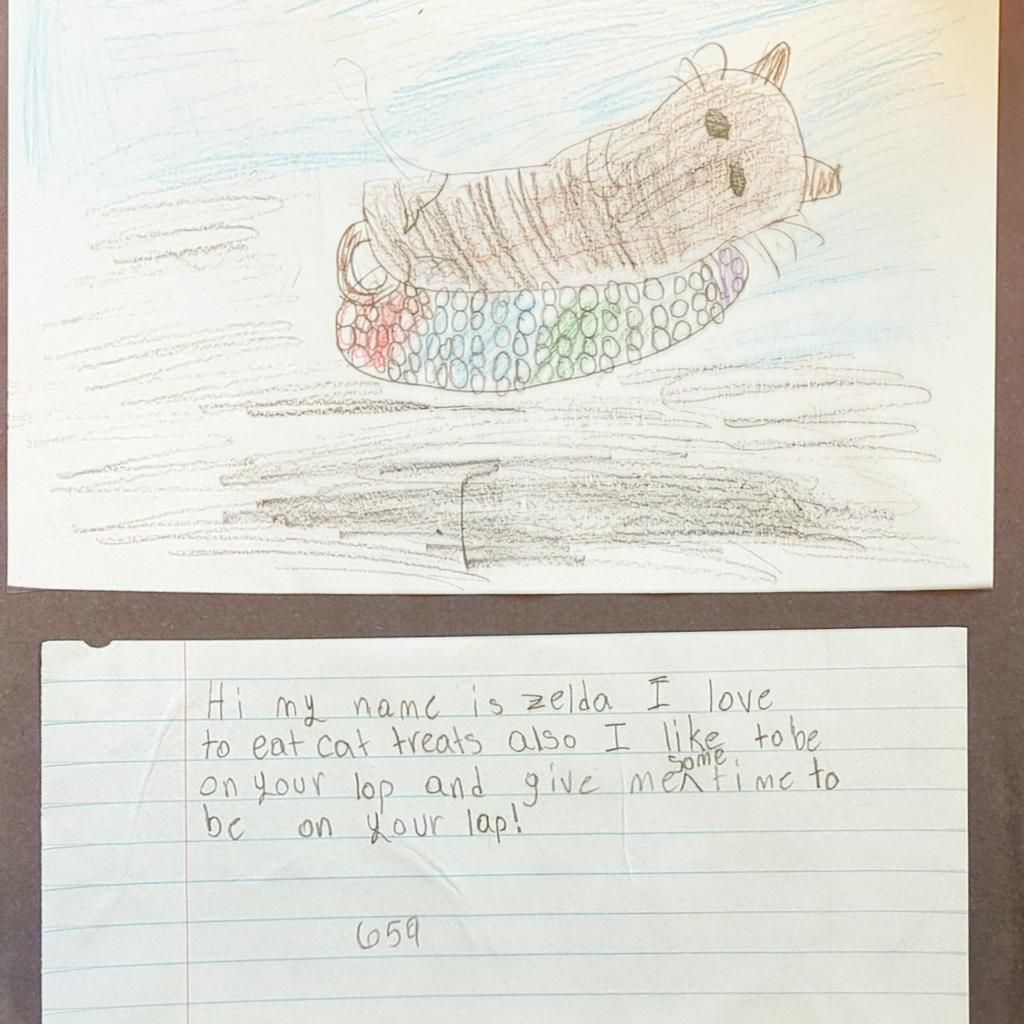 Hi my name is zelda I love
to eat cat treats also I like to be
on your lop and give me some time to
be on your lap!
659